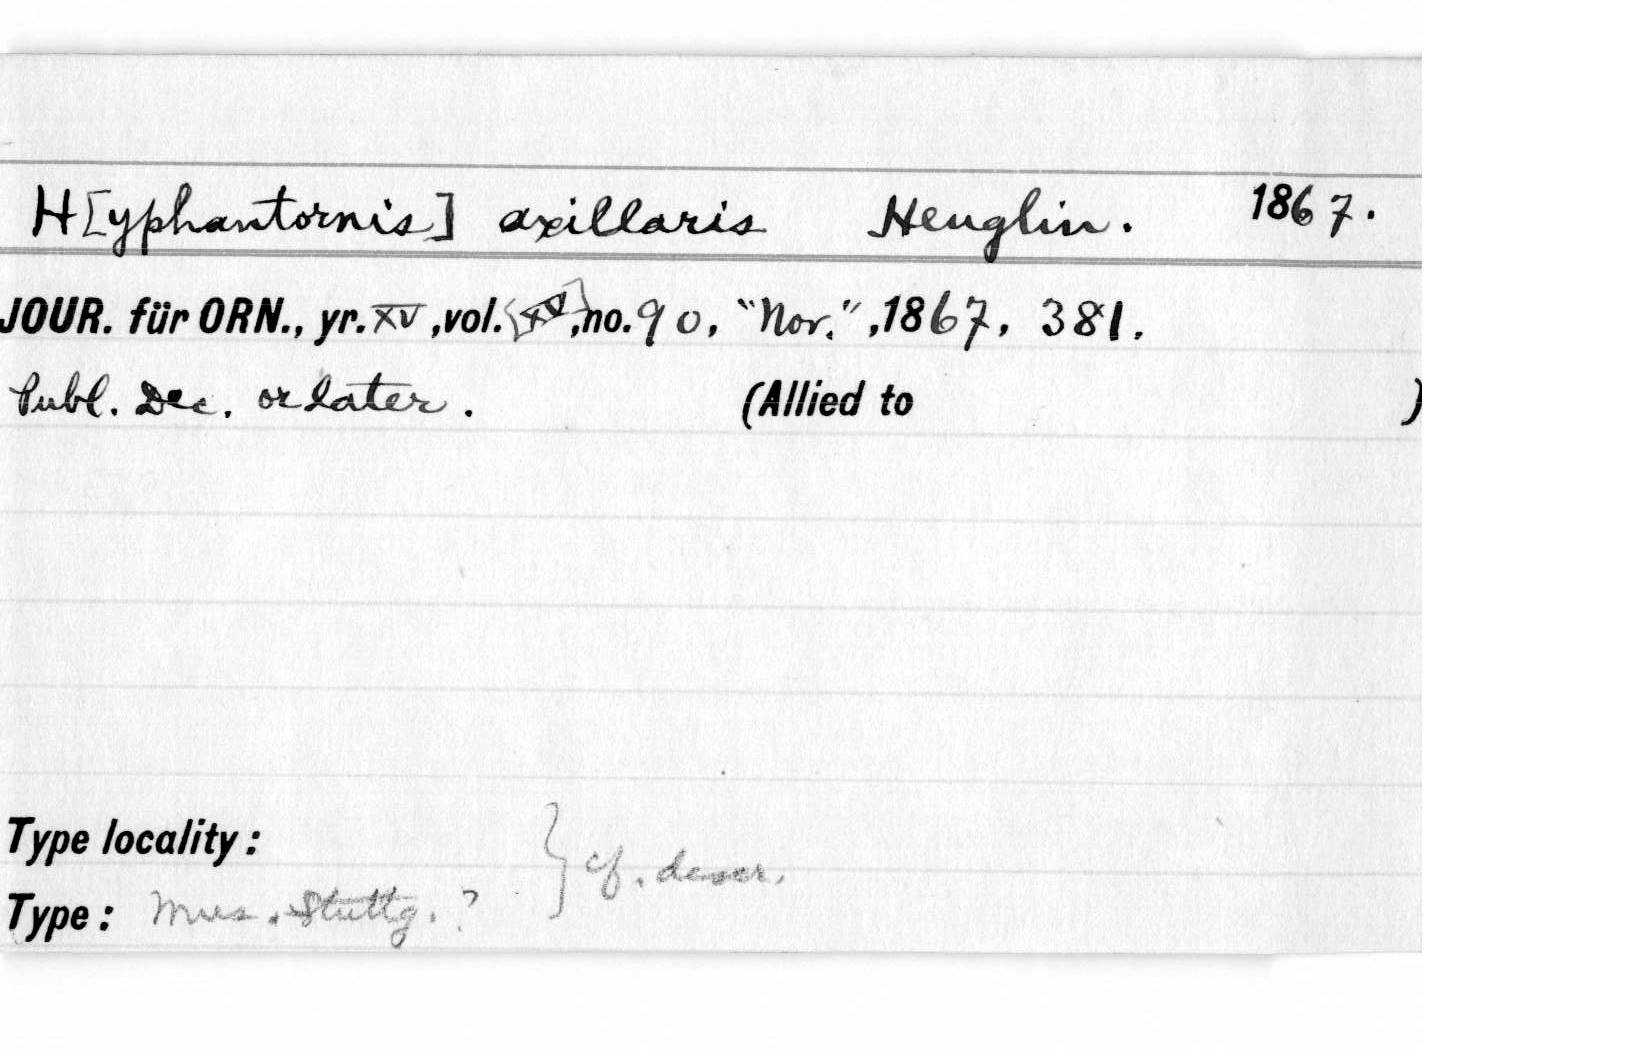 H[yphantornis] axillaris Heuglin. 1867.
JOUR. für ORN., yr. XV, vol. [XV], no. 90, "Nov.", 1867, 381.
Publ. Dec. or later. (Allied to )
Type locality:
} cf. descr.
Type: Mus. Stuttg. ?